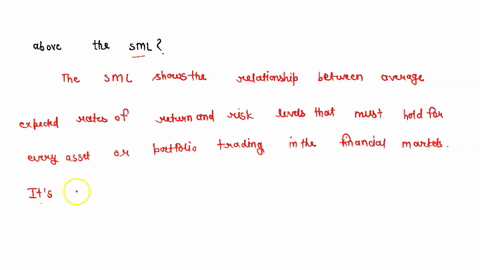 above the SML?
The SML shows the relationship between average
expected rates of return and risk levels that must hold for
every asset or portfolio trading in the financial markets.
It's